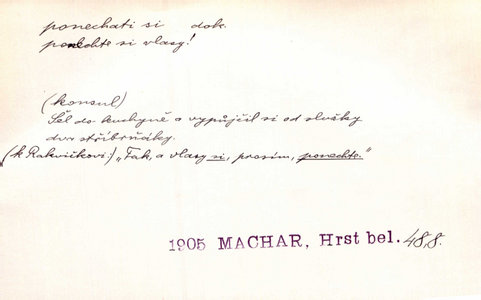 ponechati si dok.
ponechte si vlasy!
(konsul)
Šel do kuchyně a vypůjčil si od služky
dva stříbrňáky.
(k Rakvičkovi:) „Tak, a vlasy si, prosím, ponechte."
1905 MACHAR, Hrst bel. 48,8.